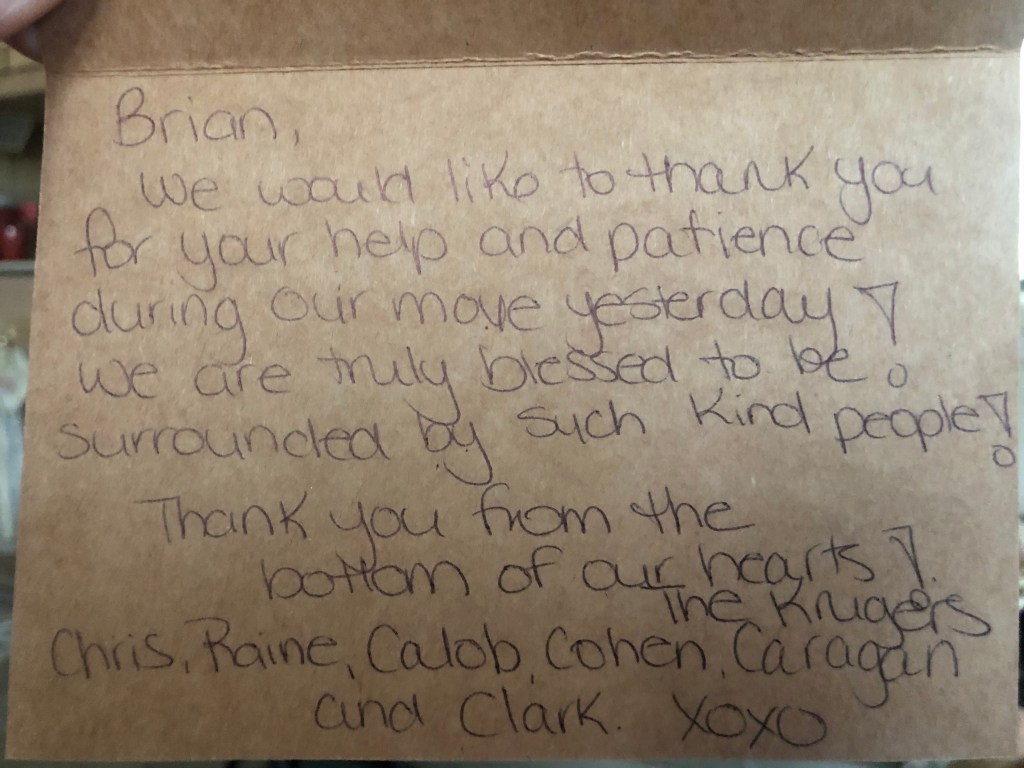 Brian,
We would like to thank you
for your help and patience
during our move yesterday!
We are truly blessed to be
surrounded by such kind people!
Thank you from the
bottom of our hearts!
The Krugers
Chris, Raine, Calob, Cohen, Caragan
and Clark. XOXO